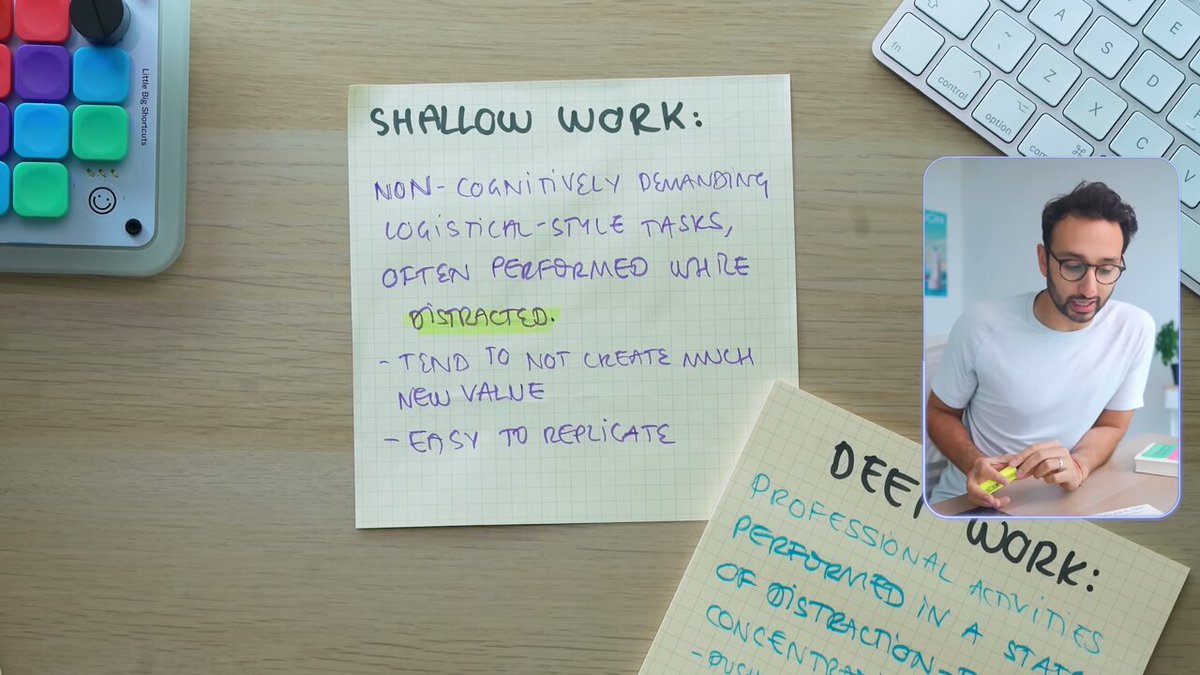 SHALLOW WORK:
NON-COGNITIVELY DEMANDING
LOGISTICAL-STYLE TASKS,
OFTEN PERFORMED WHILE
DISTRACTED.
- TEND TO NOT CREATE MUCH
NEW VALUE
- EASY TO REPLICATE
DEEP WORK:
PROFESSIONAL ACTIVITIES
PERFORMED IN A STATE
OF DISTRACTION-
Little Big Shortcuts
fn
control
option
⌘
A
S
D
E
Z
X
C
V
~